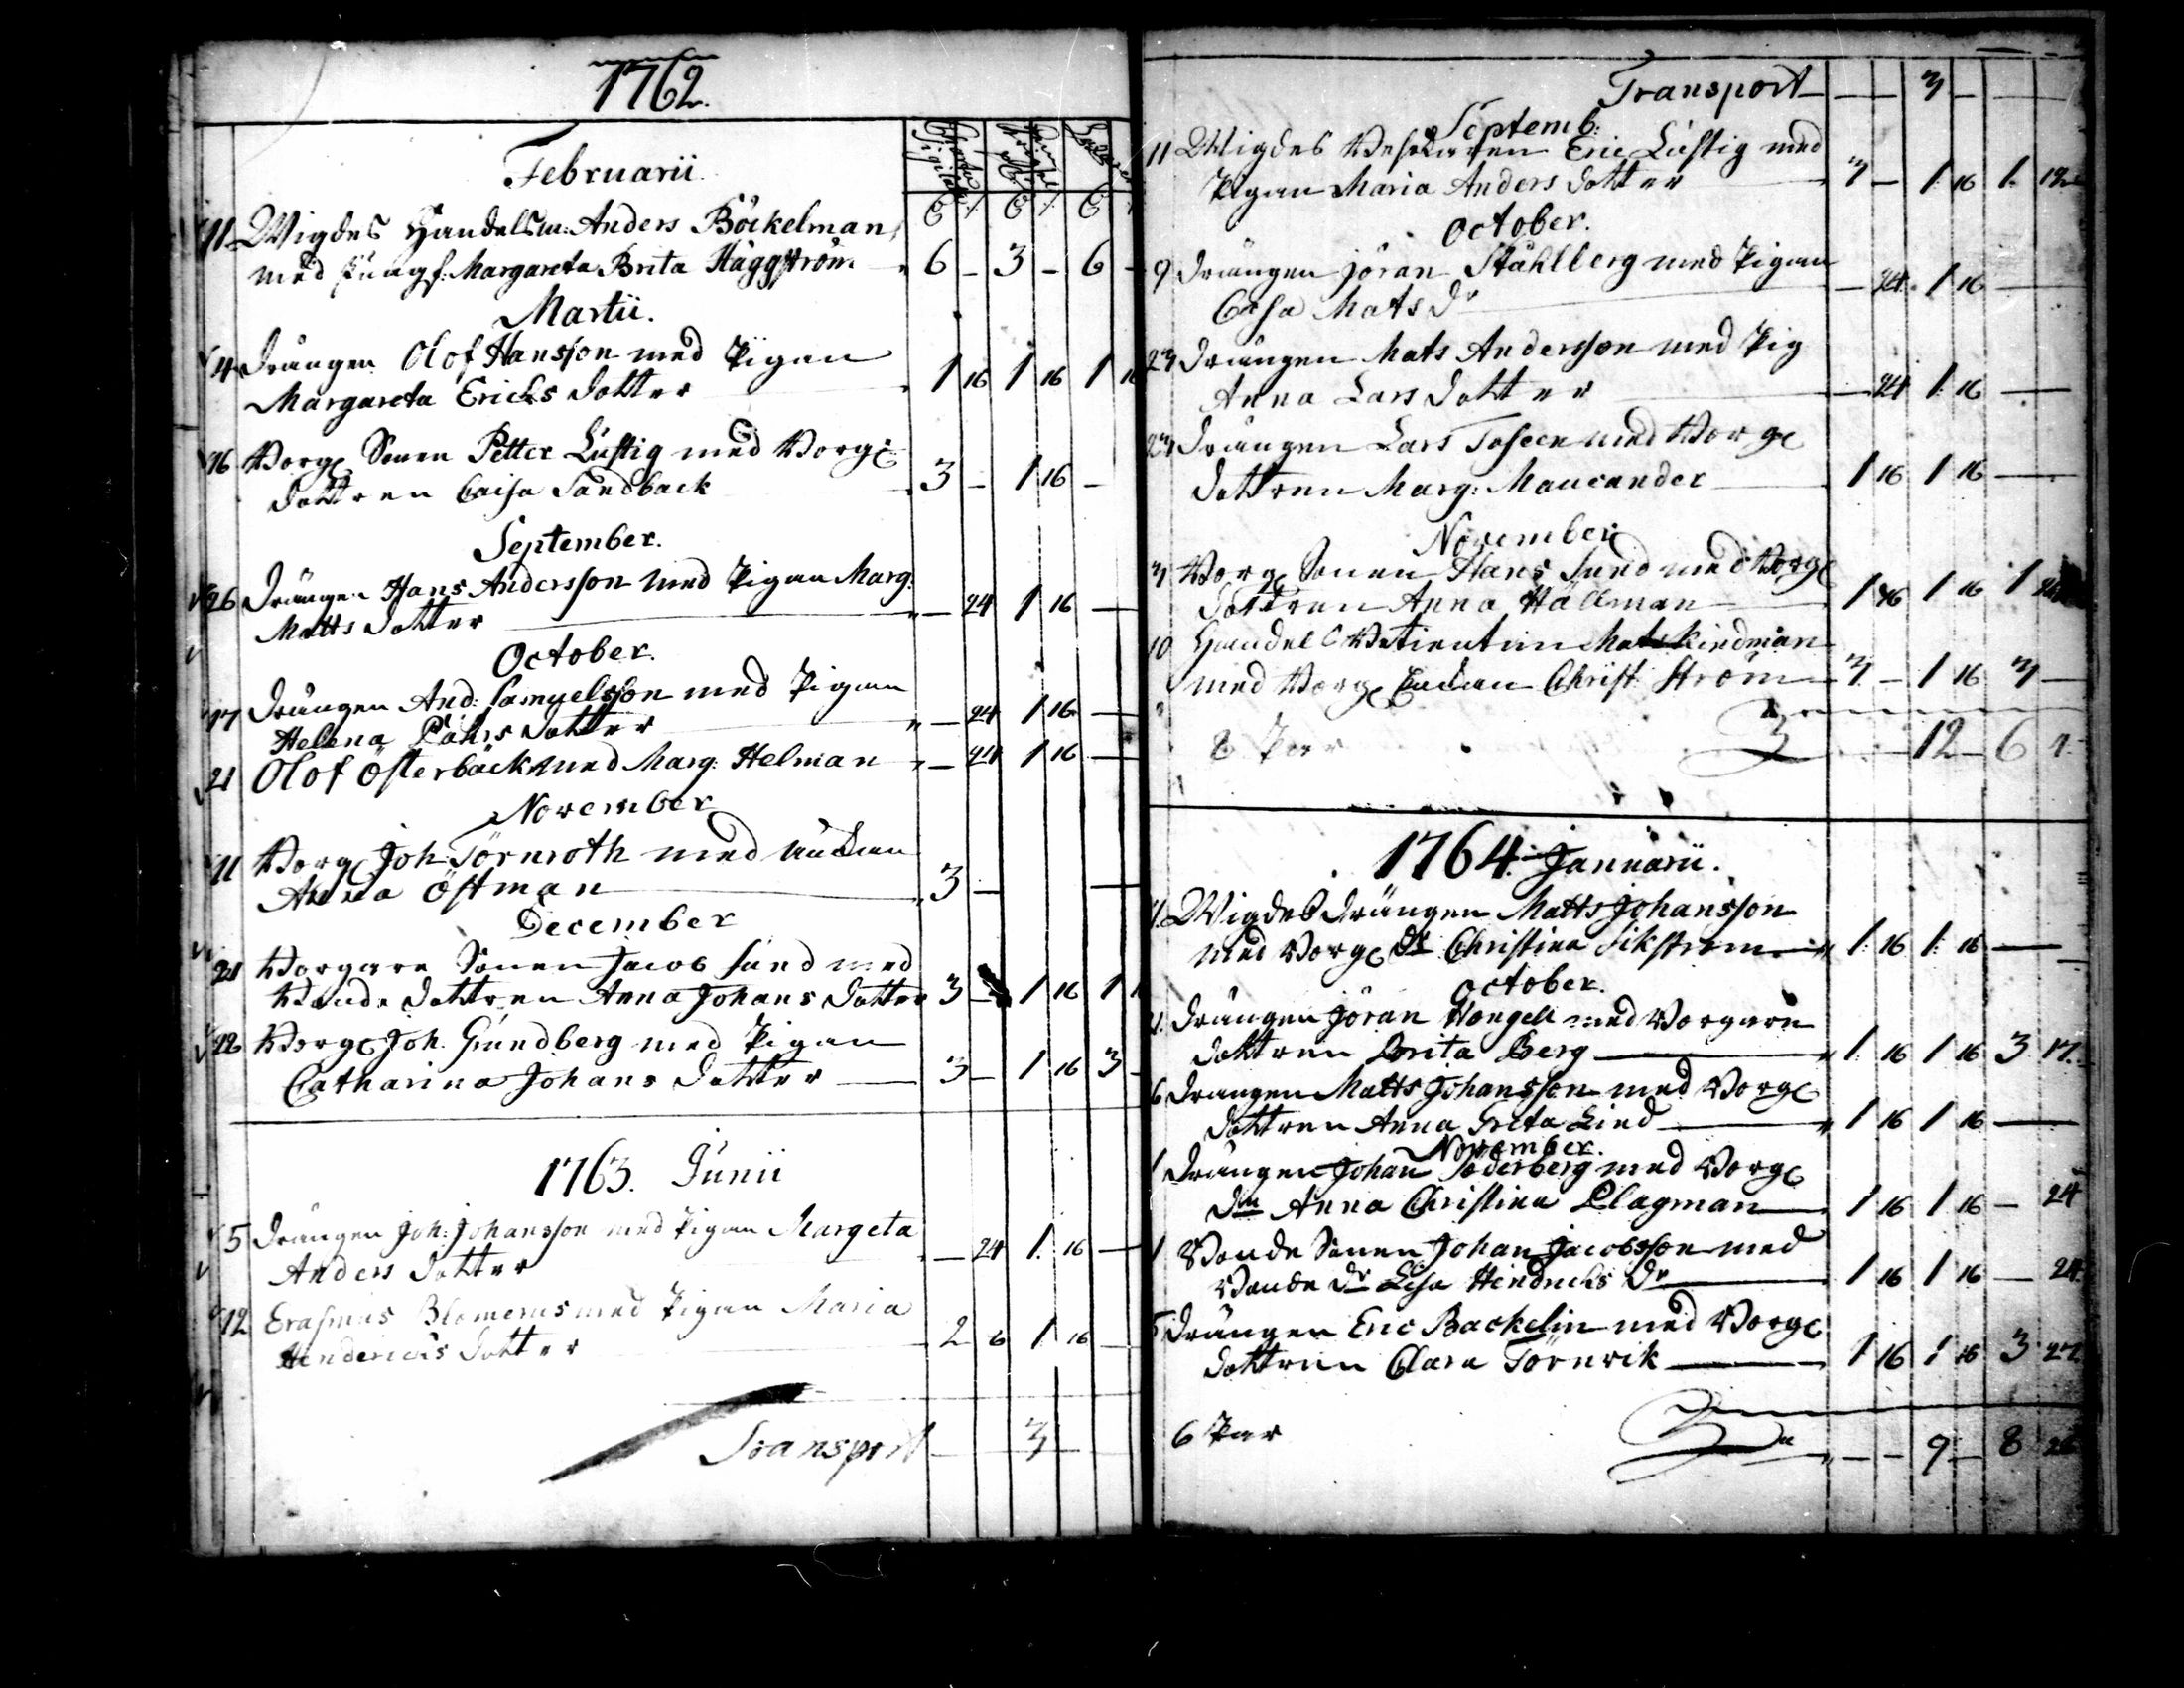 1762.
Februarii.
11 Wigdes Handelsm: Anders Böckelman
med Jungf: Margareta Brita Häggström 6 - 3 - 6 -
Martii.
4 Drängen Olof Hansson med Pigan
Margareta Erichs dotter 1 16 1 16 1 16
16 Borg: Sonen Petter Lustig med Borg:
dottren Caisa Sandback 3 - 1 16 -
September.
26 Drängen Hans Andersson med Pigan Marg:
Matts dotter - 24 1 16 -
October.
17 Drängen And: Samuelsson med Pigan
Helena dotter - 24 1 16 -
21 Olof Österback med Marg: Helman - 24 1 16 -
November
11 Borg: Joh: Törnroth med Enckan
Anna Östman 3 - -
December
21 Borgare Sonen Jacob Sund med
Bonde dottren Anna Johans dotter 3 - 1 16 1
22 Borg: Joh: Grundberg med Pigan
Catharina Johans dotter 3 - 1 16 3 -
1763. Junii
5 Drängen Joh: Johansson med Pigan Margeta
Anders dotter - 24 1. 16 -
12 Erasmus med Pigan Maria
Hendrichs dotter 2 6 1 16 -
Transport 3 -
Transport - 3 -
Septemb:
11 Wigdes Eric Lustig med
Pigan Maria Anders dotter 3 - 1 16 1.
October.
9 Drängen Jöran Ståhlberg med Pigan
Caisa Mats dr - 24. 1 16 -
23 Drängen Mats Andersson med Pig
Anna Lars dotter - 24 1. 16 -
Drängen Lars med Borg:
dottren Marg: 1 16 1 16 -
November
3 Borg: Sonen Hans Sund med Borg:
dottren Anna Hällman 1 16 1 16 1
10 Handels Mats Kindman
med Borg: Enckan Christ: Ström 3 - 1 16 3 -
8 Par - 12 - 6
1764. Januarii.
Wigdes Drängen Matts Johansson
med Borg: dr Christina Sikström 1. 16 1. 16 -
October.
Drängen Jöran Hongell med Borgare
dottren Brita Berg 1. 16 1 16 3 17.
6 Drängen Matts Johansson med Borg:
dottren Anna Greta Lind 1 16 1 16 -
November.
1 Drängen Johan Söderberg med Borg:
drn Anna Christina Plagman 1 16 1 16 - 24
1 Bonde Sonen Johan Jacobsson med
Bonde dr Lisa Hindrichs dr 1 16 1 16 - 24.
5 Drängen Eric Backelin med Borg:
dottren Clara Törnvik 1 16 1 16 3 27.
6 Par - - 9 - 8